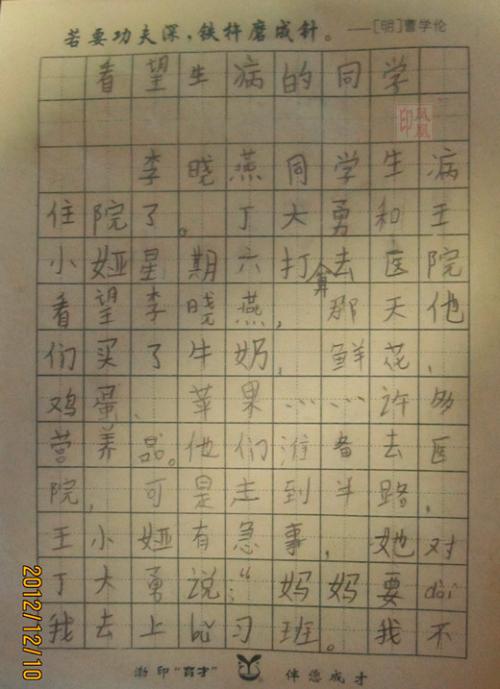 若要功夫深，铁杵磨成针。——［明］曹学伦
看望生病的同学
李晓燕同学生病
住院了。丁大勇和王
小娅星期六打算去医院
看望李晓燕，那天他
们买了牛奶，鲜花，
鸡蛋、苹果……许多
营养品。他们准备去医
院，可是走到半路，
王小娅有急事，她对
丁大勇说：“妈妈要dài
我去上补习班。我不
2012/12/10
渤印“育才” 伴您成才